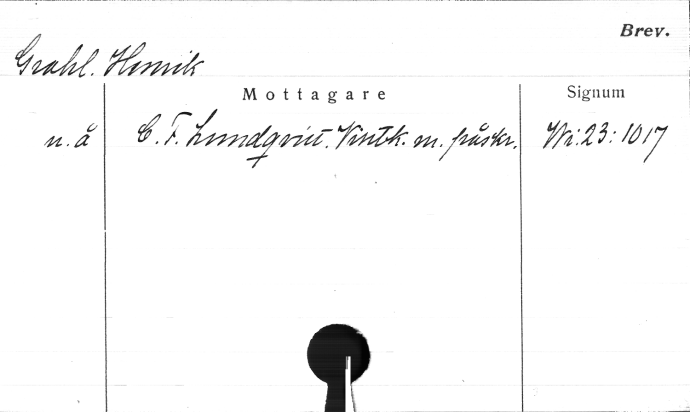 Brev.
Grahl. Henrik
Mottagare Signum
u. å C. F. Lundqvist. Visitk. m. påskr. Wi: 23: 1017